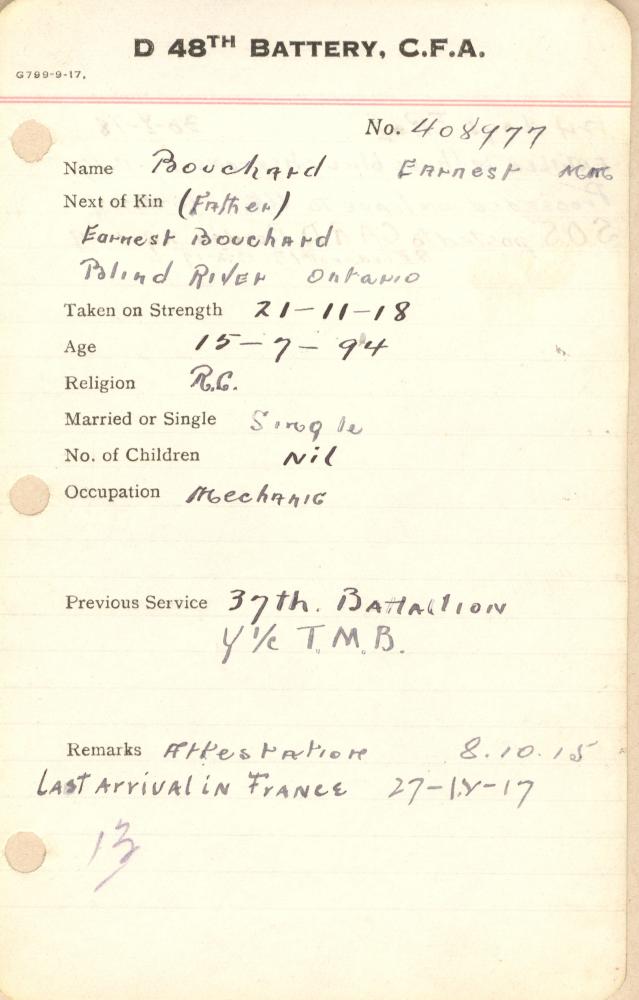 D 48TH BATTERY, C.F.A.
G799-9-17.
No. 408977
Name Bouchard Earnest
Next of Kin (Father)
Earnest Bouchard
Blind River Ontario
Taken on Strength 21-11-18
Age 15-7-94
Religion R.C.
Married or Single Single
No. of Children Nil
Occupation Mechanic
Previous Service 37th. Battalion
T.M.B.
Remarks Attestation 8.10.15
Last Arrival in France
13